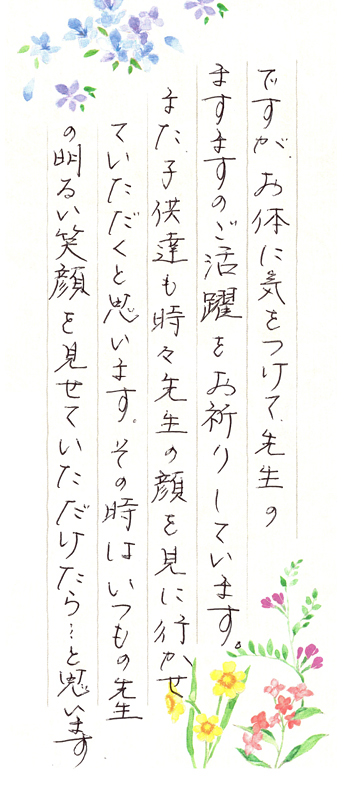 ですが、お体に気をつけて、先生の
ますますのご活躍をお祈りしています。
また、子供達も時々先生の顔を見に行かせ
ていただくと思います。その時はいつもの先生
の明るい笑顔を見せていただけたら…と思います